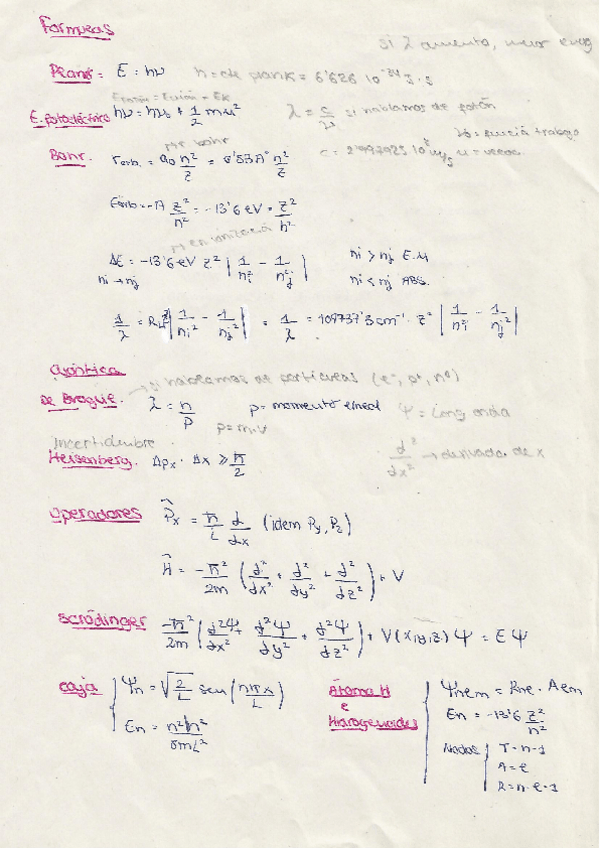 Fórmulas
si λ aumenta, menor energ
Plank = E = hν   h = cte plank = 6'626 10⁻³⁴ J·s
E fotón = E unión + Ek
E. fotoeléctrico hν = hν₀ + 1/2 mu²   λ = c/ν si hablamos de fotón
ν₀ = función trabajo
Bohr. r orb. = a₀ n²/Z = 0'53 A° n²/Z   c = 2'997925 10⁸ m/s   u = veloc.
E orb = -A Z²/n² = -13'6 eV · Z²/n²
ΔE = -13'6 eV Z² | 1/ni² - 1/nj² |   ni > nj E.M
ni → nj   ni < nj ABS.
1/λ = RH Z² | 1/ni² - 1/nj² | = 1/λ = 109737'3 cm⁻¹ · Z² | 1/ni² - 1/nj² |
Cuántica
→ si hablamos de partículas (e⁻, p⁺, nº)
De Broglie. λ = h/p   p = momento lineal   Ψ = long onda
p = m·v
Incertidumbre
Heisenberg. Δpx · Δx ≥ ħ/2   d²/dx² → derivada de x
Operadores P̂x = ħ/i d/dx (idem Py, Pz)
Ĥ = -ħ²/2m ( d²/dx² + d²/dy² + d²/dz² ) + V
Scrödinger -ħ²/2m ( d²Ψ/dx² + d²Ψ/dy² + d²Ψ/dz² ) + V(x,y,z) Ψ = E Ψ
caja { Ψn = √(2/L) sen ( nπx/L )
En = n²h²/8mL²
Átomo H e Hidrogenoides { Ψnlm = Rnl · Alm
En = -13'6 Z²/n²
Nodos { T = n-1
A = l
R = n-l-1